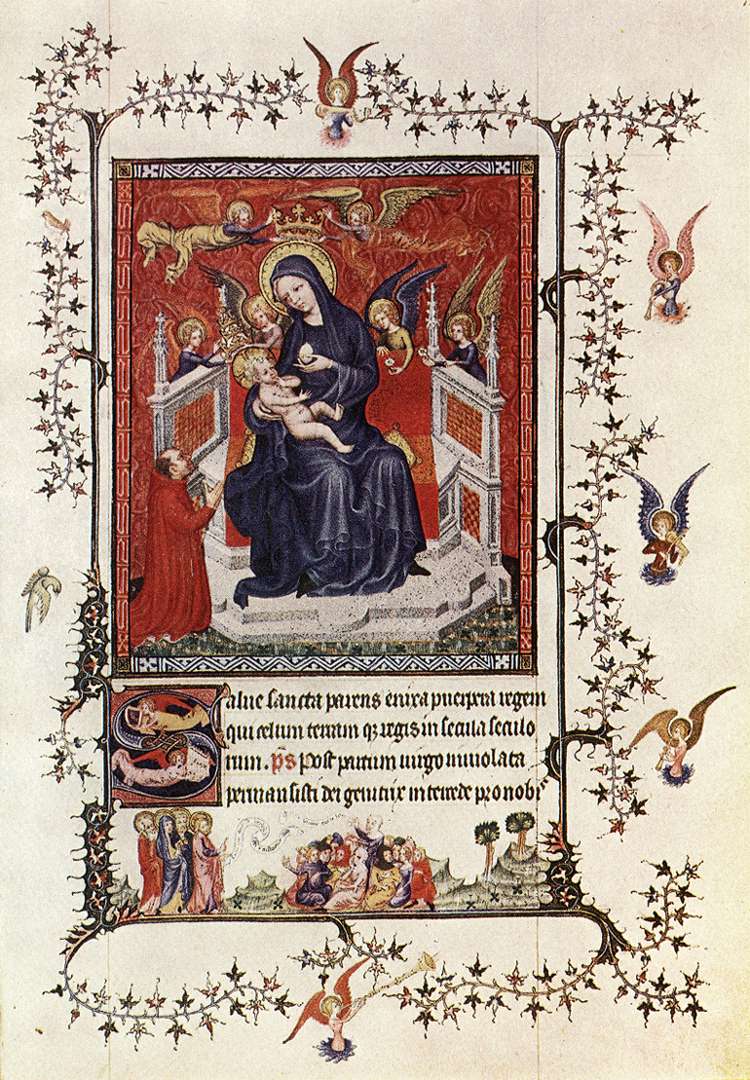 Salue sancta parens enixa puerpera regem
qui celum terram q3 regis in secula seculo
rum. ps Post partum uirgo inuiolata
permansisti dei genitrix intercede pro nobis